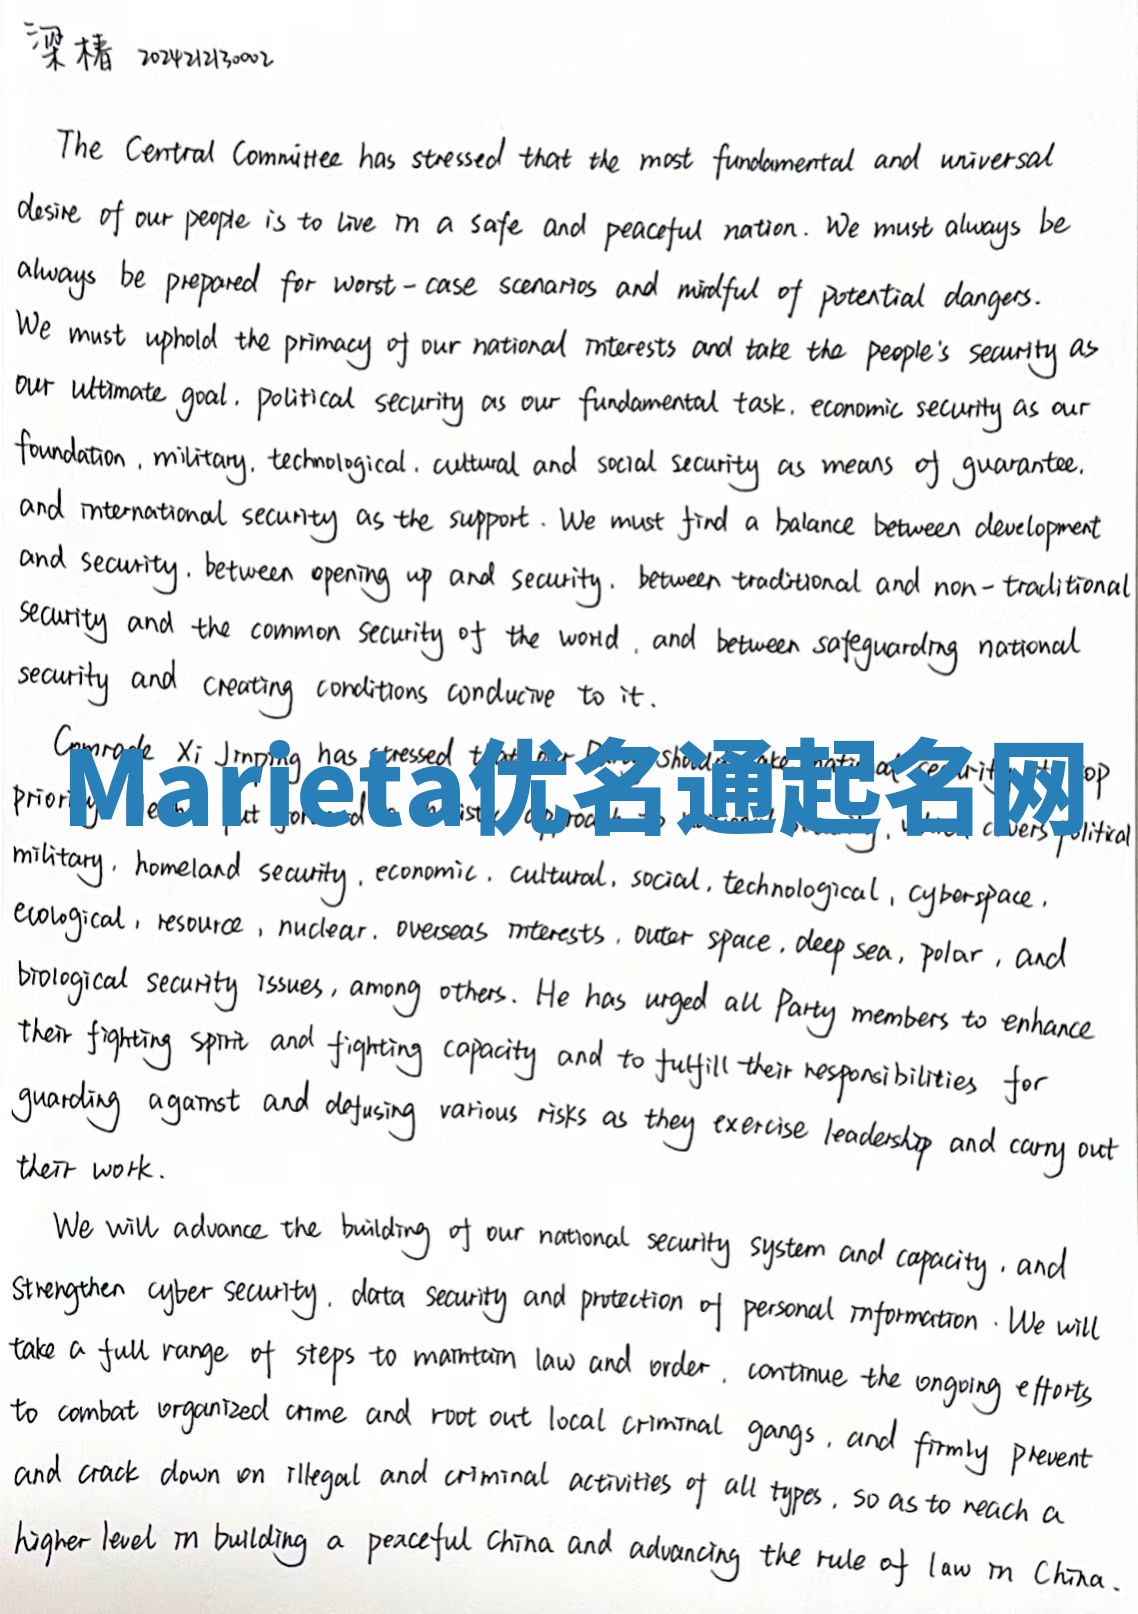 梁椿 2024212130002
The Central Committee has stressed that the most fundamental and universal
desire of our people is to live in a safe and peaceful nation. We must always be
always be prepared for worst-case scenarios and mindful of potential dangers.
We must uphold the primacy of our national interests and take the people's security as
our ultimate goal, political security as our fundamental task, economic security as our
foundation, military, technological, cultural and social security as means of guarantee,
and international security as the support. We must find a balance between development
and security, between opening up and security, between traditional and non-traditional
security and the common security of the world, and between safeguarding national
security and creating conditions conducive to it.
Comrade Xi Jinping has stressed that our should
Marieta优名通起名网
priority put covers political
military, homeland security, economic, cultural, social, technological, cyberspace,
ecological, resource, nuclear, overseas interests, outer space, deep sea, polar, and
biological security issues, among others. He has urged all Party members to enhance
their fighting spirit and fighting capacity and to fulfill their responsibilities for
guarding against and defusing various risks as they exercise leadership and carry out
their work.
We will advance the building of our national security system and capacity, and
strengthen cyber security, data security and protection of personal information. We will
take a full range of steps to maintain law and order, continue the ongoing efforts
to combat organized crime and root out local criminal gangs, and firmly prevent
and crack down on illegal and criminal activities of all types, so as to reach a
higher level in building a peaceful China and advancing the rule of law in China.